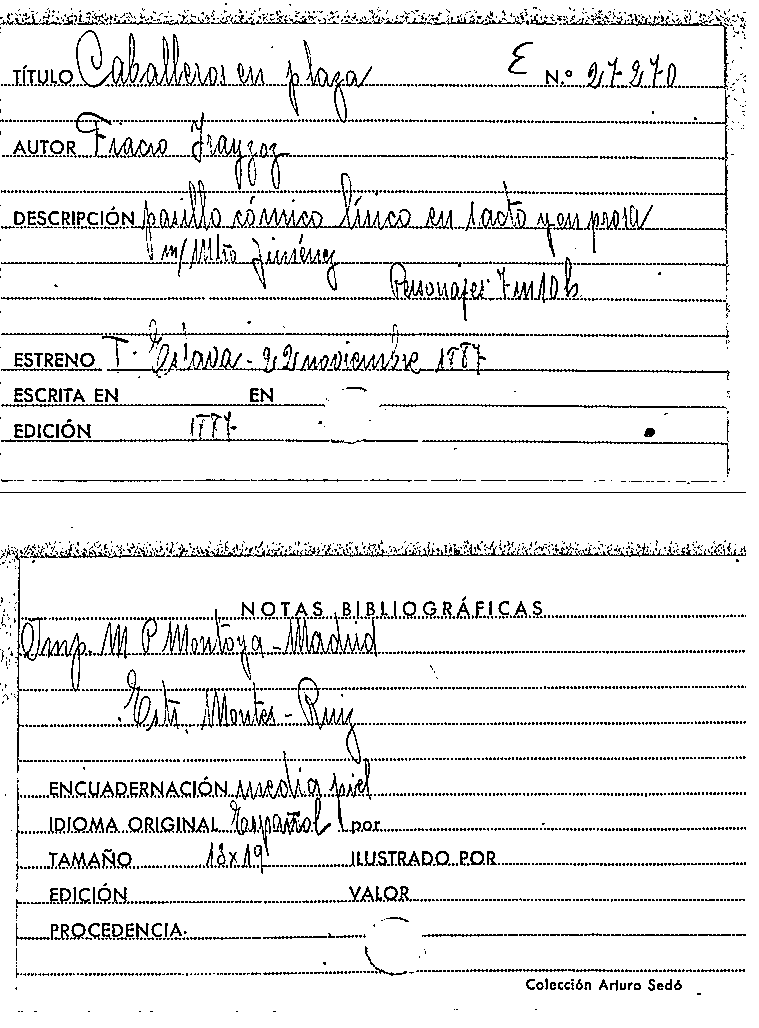 TÍTULO Caballeros en plaza E N.º 27270
AUTOR Fiacro Irayzoz
DESCRIPCIÓN pasillo cómico lírico en 1 acto y en prosa
m/ Mtro Jiménez
Personajes 7 m 10 h
ESTRENO T. Eslava - 22 noviembre 1887
ESCRITA EN EN
EDICIÓN 1887
NOTAS BIBLIOGRÁFICAS
Imp. M P Montoya - Madrid
Estr. Montes - Ruiz
ENCUADERNACIÓN media piel
IDIOMA ORIGINAL Español por
TAMAÑO 13x19 ILUSTRADO POR
EDICIÓN VALOR
PROCEDENCIA.
Colección Arturo Sedó